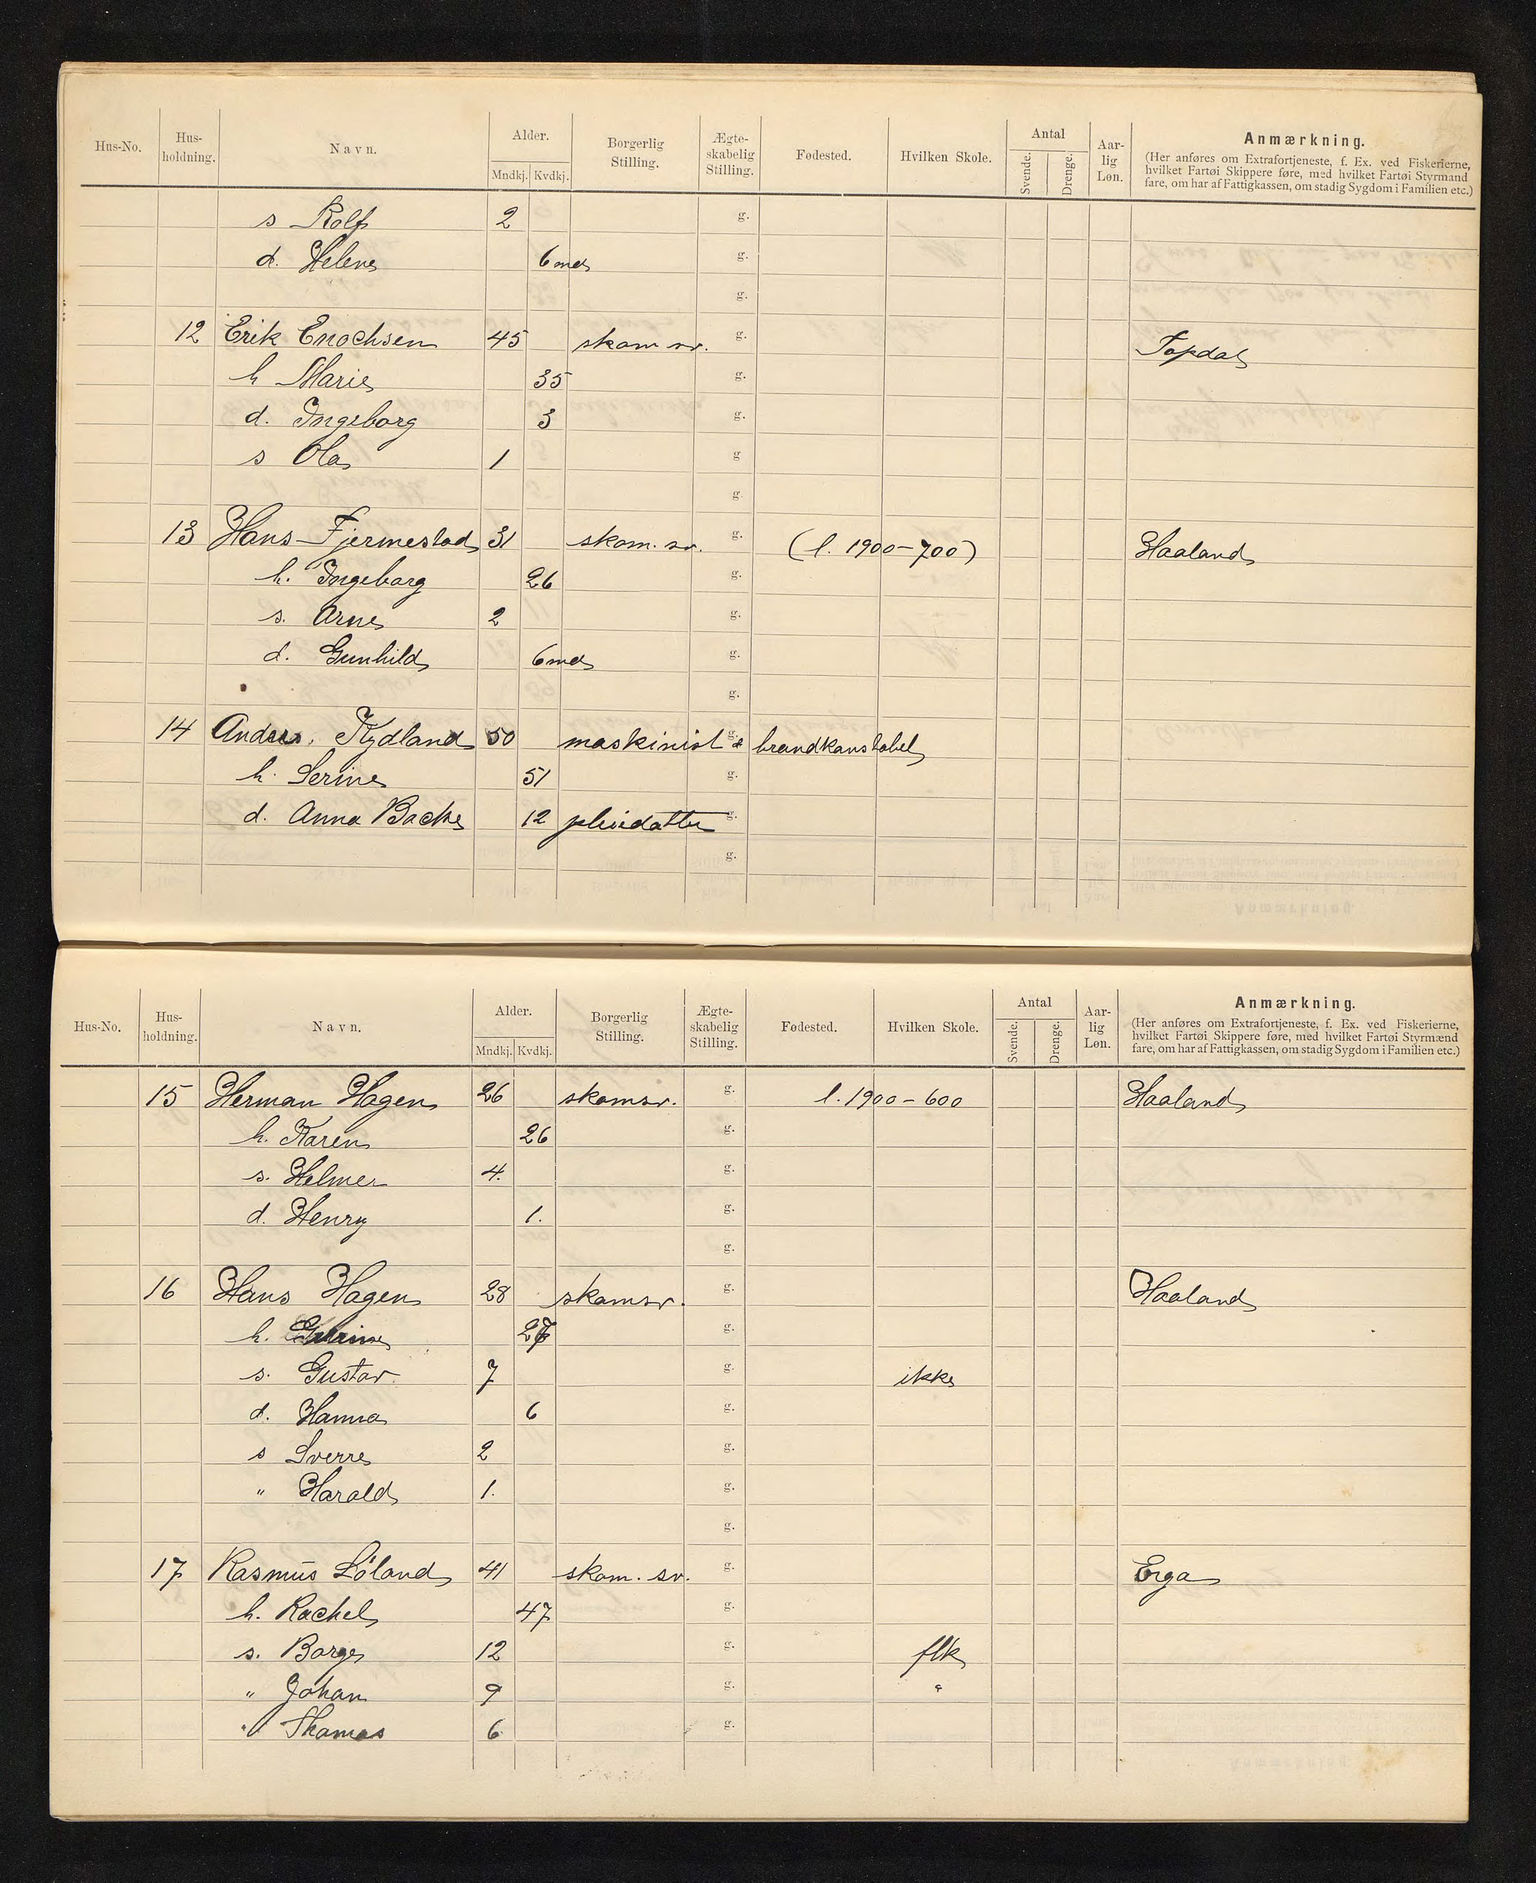 Hus-No. Hus-holdning. Navn. Alder. Mndkj. Kvdkj. Borgerlig Stilling. Ægte-skabelig Stilling. Fødested. Hvilken Skole. Antal Svende. Drenge. Aar-lig Løn. Anmærkning.
(Her anføres om Extrafortjeneste, f. Ex. ved Fiskerierne,
hvilket Fartøi Skippere føre, med hvilket Fartøi Styrmænd
fare, om har af Fattigkassen, om stadig Sygdom i Familien etc.)
s Rolf 2 g.
d. Helene 6 mds g.
g.
12 Erik Enochsen 45 skom sv. g. Topdal
h Marie 35 g.
d. Ingeborg 3 g.
s Ola 1 g
g.
13 Hans Fjermestad 31 skom. sv. g. (l. 1900-700) Haaland
h. Ingeborg 26 g.
s. Arne 2 g.
d. Gunhild 6 mds g.
g.
14 Andreas Rydland 50 maskinist & g. brandkonstabel
h. Serine 51 g.
d. Anna Backe 12 pleiedatter g.
g.
Hus-No. Hus-holdning. Navn. Alder. Mndkj. Kvdkj. Borgerlig Stilling. Ægte-skabelig Stilling. Fødested. Hvilken Skole. Antal Svende. Drenge. Aar-lig Løn. Anmærkning.
(Her anføres om Extrafortjeneste, f. Ex. ved Fiskerierne,
hvilket Fartøi Skippere føre, med hvilket Fartøi Styrmænd
fare, om har af Fattigkassen, om stadig Sygdom i Familien etc.)
15 Herman Hagen 26 skomsv. g. l. 1900-600 Haaland
h. Karen 26 g.
s. Helmer 4. g.
d. Henry 1. g.
g.
16 Hans Hagen 28 skomsv. g. Haaland
h. g.
s. Gustav 7 g. ikke
d. Hanna 6 g.
s Sverre 2 g.
" Harald 1. g.
g.
17 Rasmus Løland 41 skom. sv. g. Erga
h. Rachel 47 g.
s. Borge 12 g. flk
" Johan 9 g. "
" Thomas 6 g.